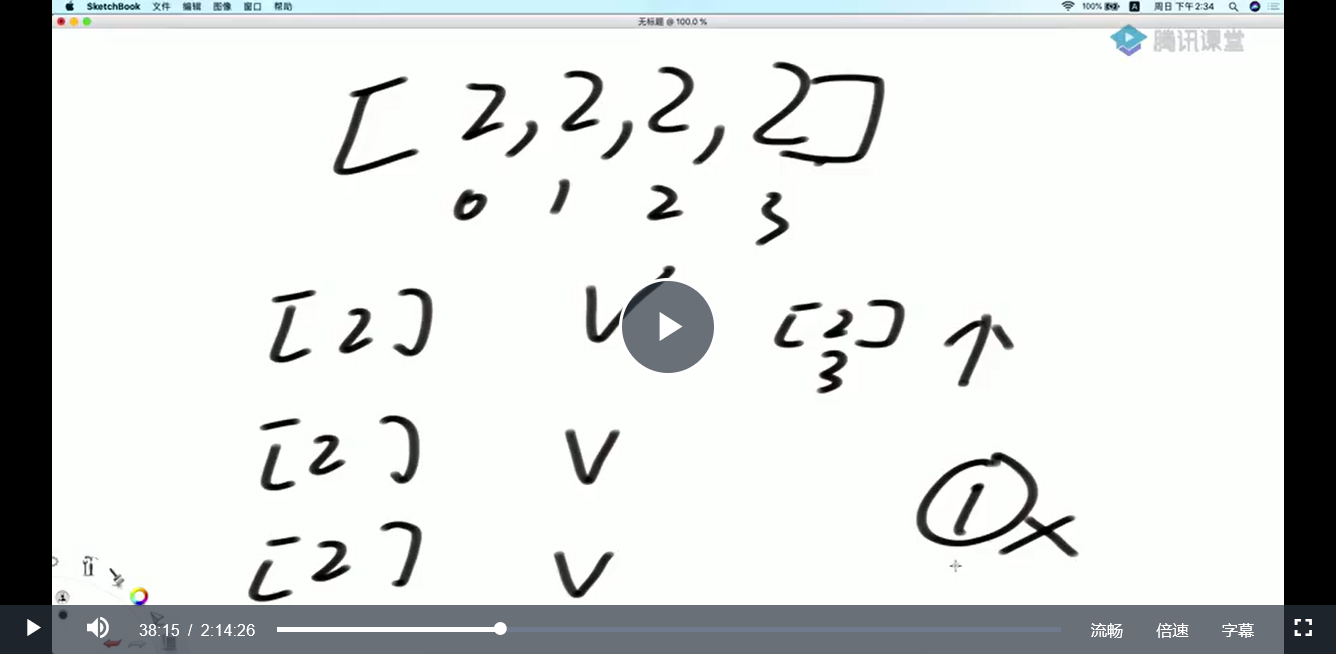 SketchBook 文件 编辑 图像 窗口 帮助 100% A 周日 下午2:34
无标题 @ 100.0 %
腾讯课堂
[ 2, 2, 2, 2 ]
0 1 2 3
[ 2 ] V [ 2 ] ↑
3
[ 2 ] V
① X
[ 2 ] V
38:15 / 2:14:26 流畅 倍速 字幕